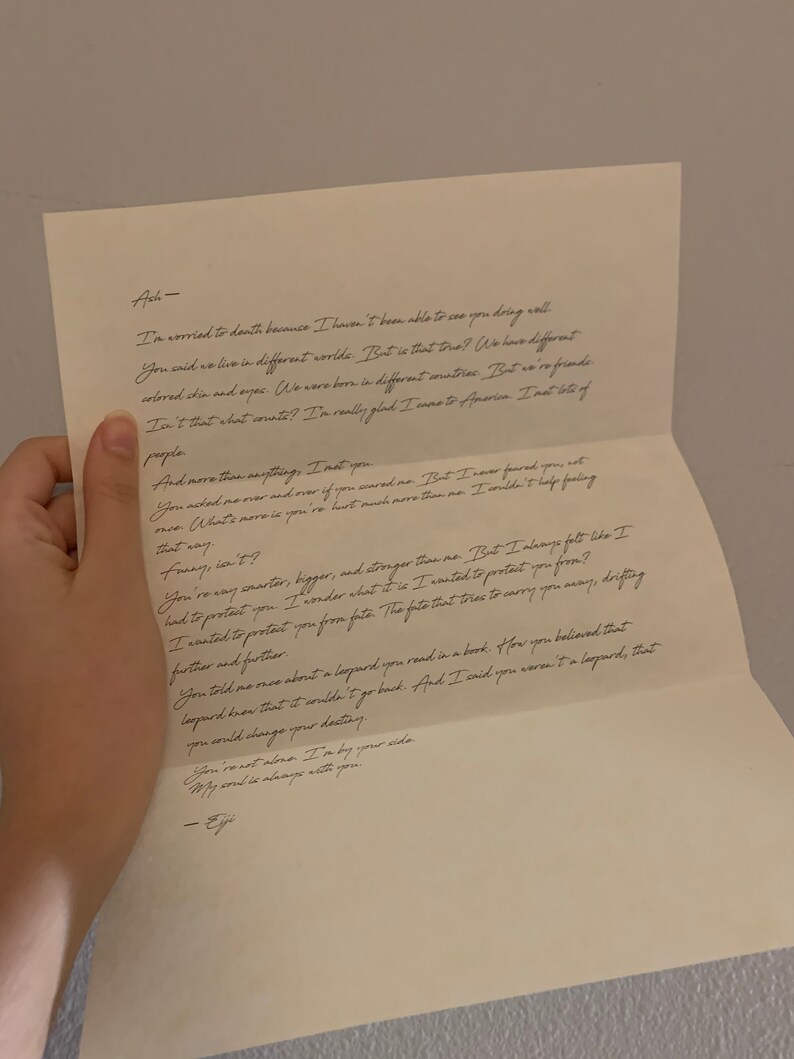 Ash —
I'm worried to death because I haven't been able to see you doing well.
You said we live in different worlds. But is that true? We have different
colored skin and eyes. We were born in different countries. But we're friends.
Isn't that what counts? I'm really glad I came to America. I met lots of
people.
And more than anything, I met you.
You asked me over and over if you scared me. But I never feared you, not
once. What's more is you're hurt much more than me. I couldn't help feeling
that way.
Funny, isn't?
You're way smarter, bigger, and stronger than me. But I always felt like I
had to protect you. I wonder what it is I wanted to protect you from?
I wanted to protect you from fate. The fate that tries to carry you away, drifting
further and further.
You told me once about a leopard you read in a book. How you believed that
leopard knew that it couldn't go back. And I said you weren't a leopard, that
you could change your destiny.
You're not alone. I'm by your side.
My soul is always with you.
— Eiji